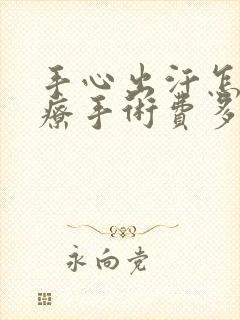 手心出汗怎
療手術費多
永向党